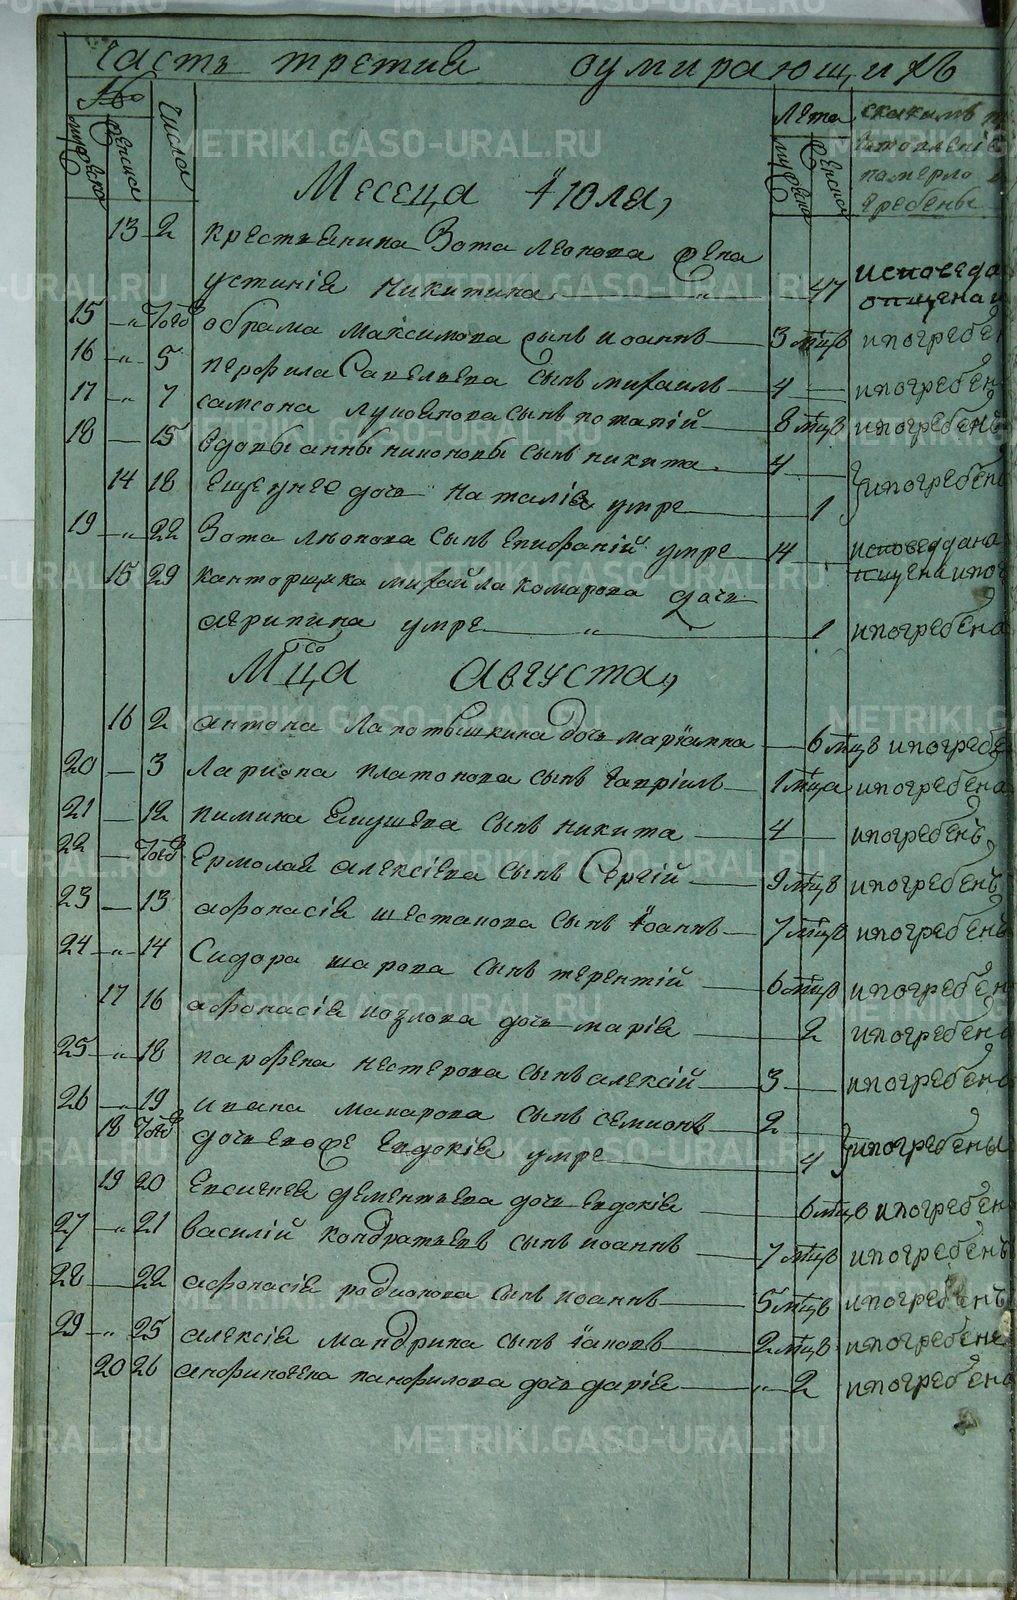 часть третия о умирающихъ
№
мужеска
женска
числа
Лета
мужеска
женска
скакимъ
помержо
гребены
Месеца Iюля,
13 2 крестьянина Зота Леонова жена
устинiя никитина " 47 исповеда
15 " Того обрама максимова сынъ иоаннъ 3 мцъ ипогребен
16 " 5 перфила Савельева сынъ михаилъ 4 ипогребен
17 " 7 самсона лукоянова сынъ потапiй 8 мцъ ипогребенъ
18 15 вдовы анны никоновы сынъ никита 4
14 18 Ещеунее дочь Наталiя умре 1 ипогребен
19 " 22 Зота леонова сынъ епифанiй умре 14 исповеддана
15 29 канторщика михайла комарова дочь
агрипина умре " 1 ипогребена
Мца августа,
16 2 антона Лапотышкина дочь марiанна 6 мцъ ипогребе
20 3 Лариона платонова сынъ гаврiилъ 1 мца ипогребена
21 12 пимина Епушева сынъ никита 4 ипогребенъ
22 Того Ермолая алексiева сынъ Сергiй 9 мцъ ипогребенъ
23 13 афонасiя шестакова сынъ Iоаннъ 7 мцъ ипогребенъ
24 " 14 Сидора шарова сынъ терентiй 6 мцъ ипогребен
17 16 афонасiя козлова дочь марiя 2 ипогребена
25 " 18 парфена нестерова сынъ алексiй 3 ипогребена
26 " 19 ивана макарова сынъ семионъ 2
18 Того дочь евоже Евдокiя умре 4 ипогребены
19 20 Евсигнея дементьева дочь евдокiя 6 мцъ ипогребен
27 " 21 василiй кондратьевъ сынъ иоаннъ 7 мцъ ипогребенъ
28 22 афонасiя родионова сынъ иоаннъ 5 мцъ ипогребенъ
29 " 25 алексiя мандрина сынъ Iаковъ 2 мцъ ипогребене
20 26 анфиногена панфилова дочь дарiя " 2 ипогребена
METRIKI.GASO-URAL.RU